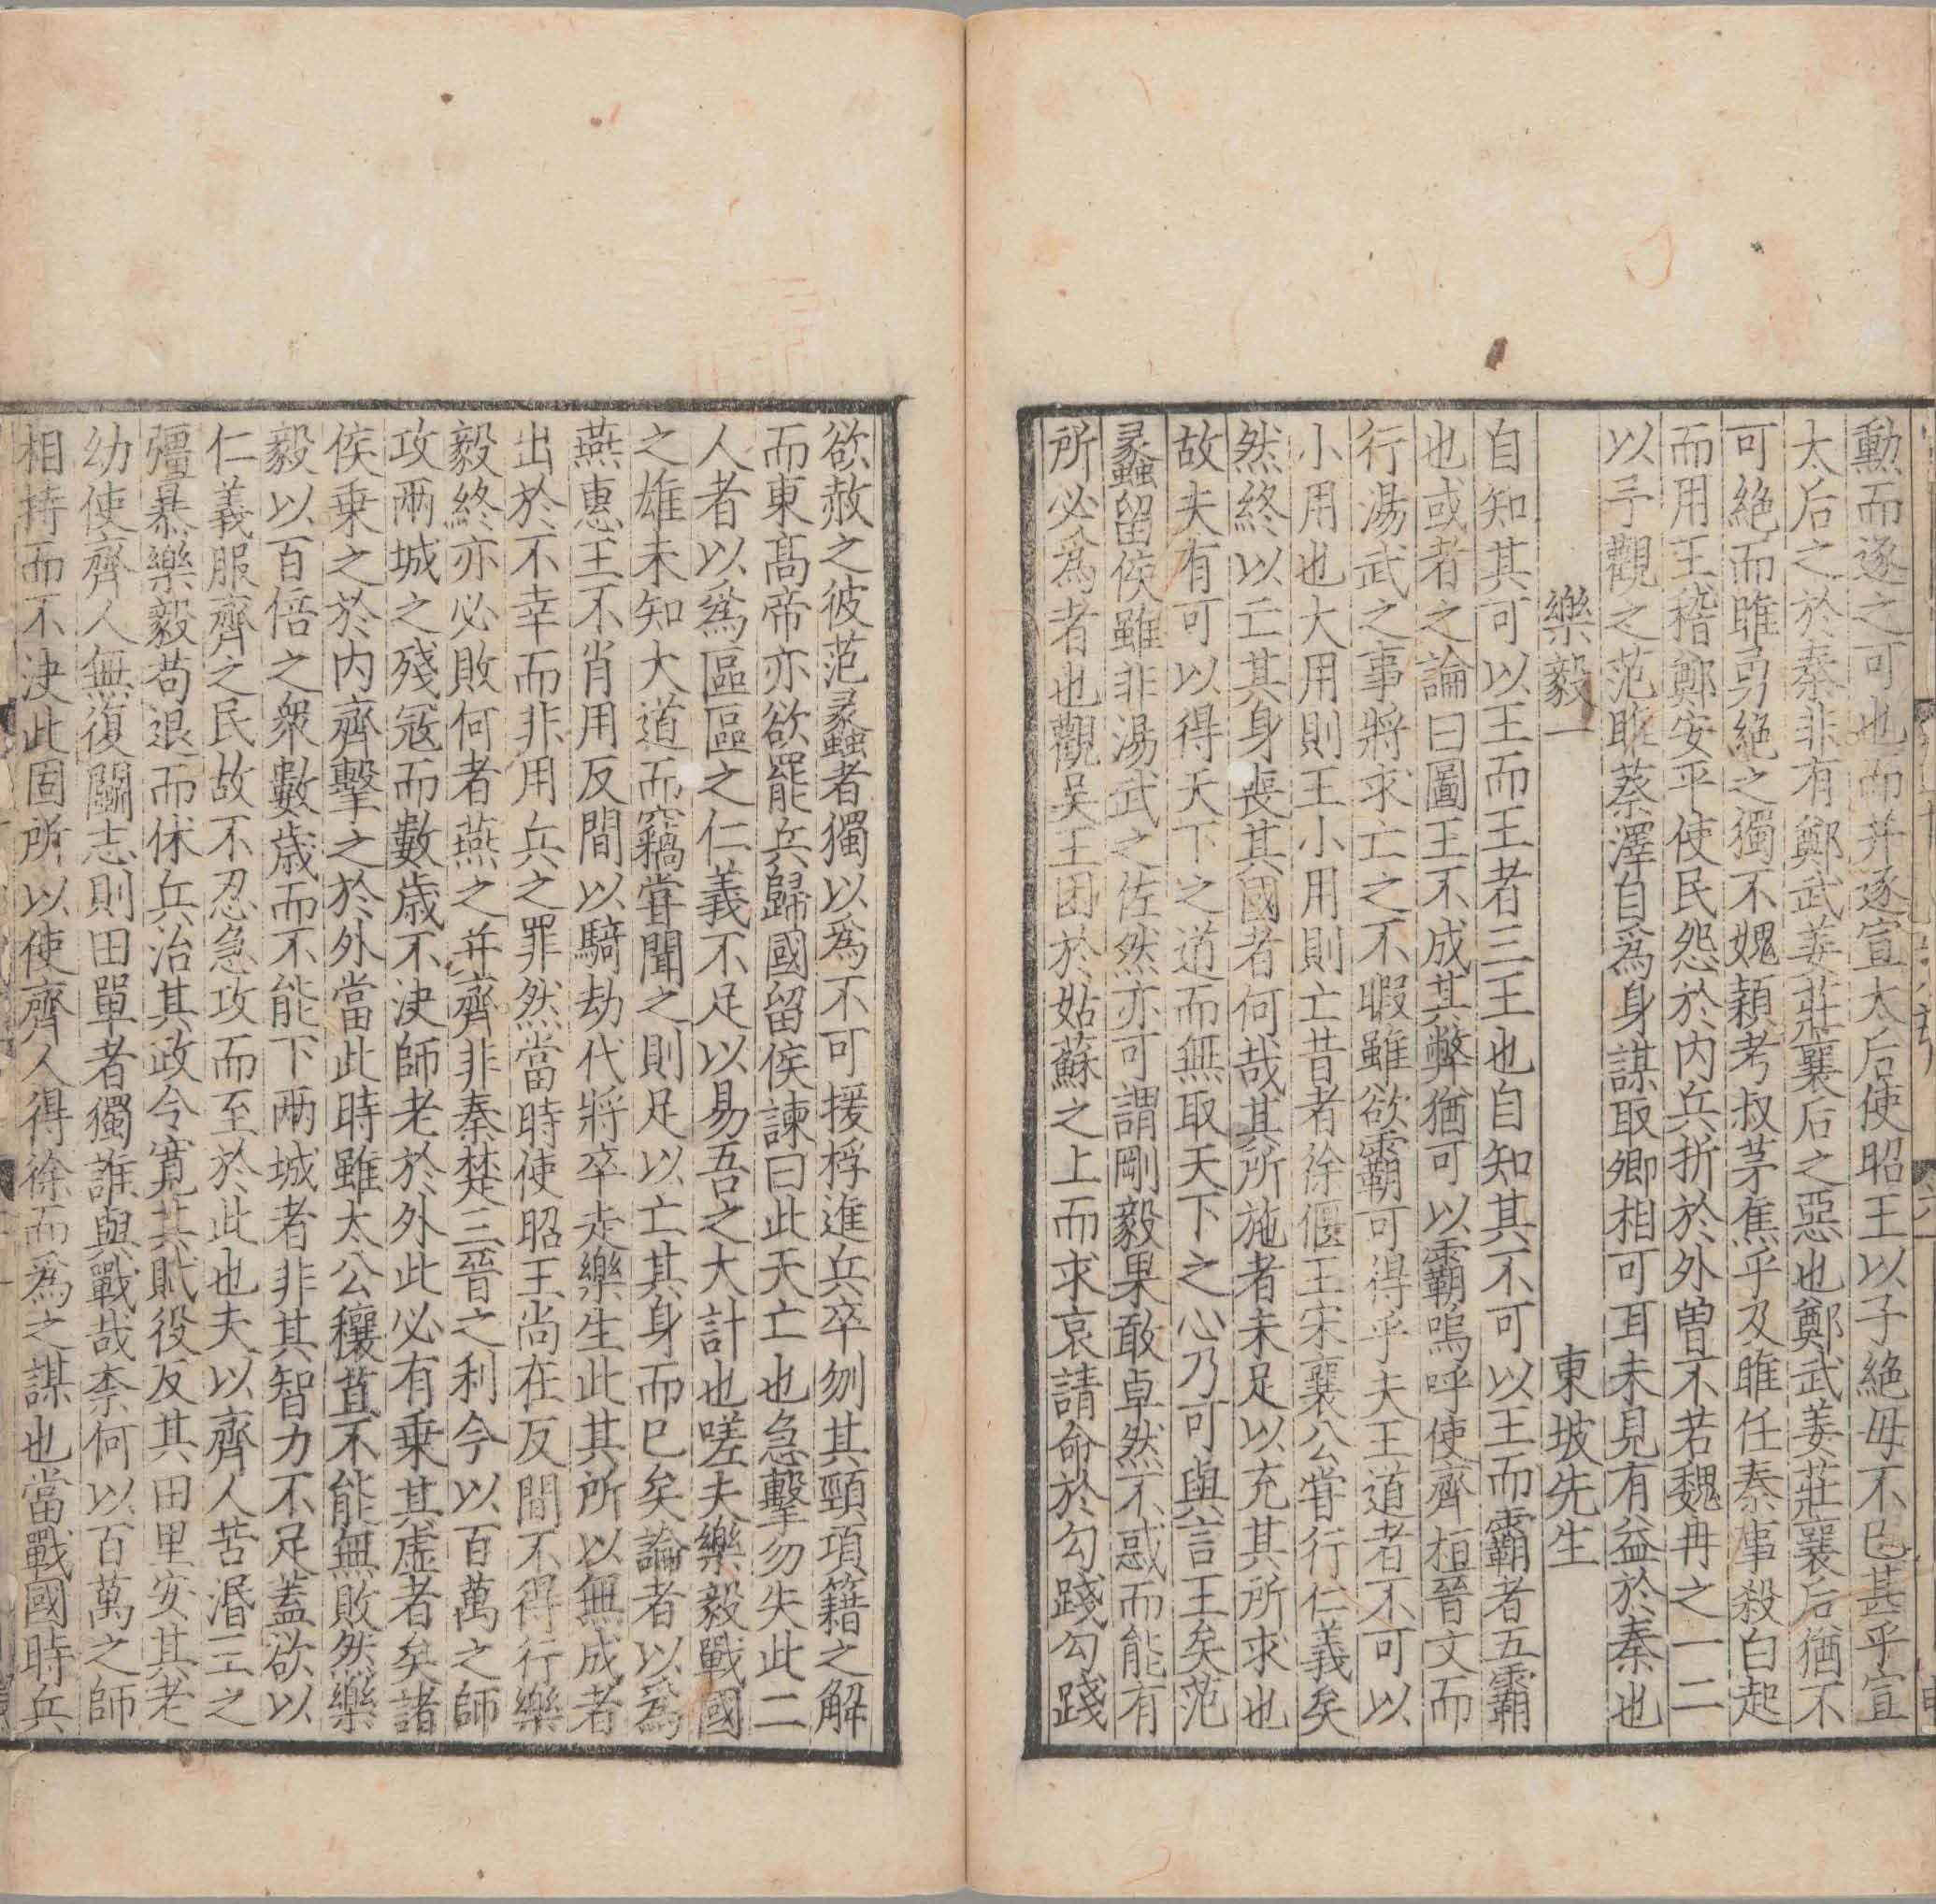 勲而逐之可也而并逐宣太后使昭王以子絶毋不已甚乎宣
太后之於秦非有鄭武姜莊襄后之惡也鄭武姜莊襄后猶不
可絶而睢勇絶之獨不媿潁考叔茅焦乎及睢任秦事殺白起
而用王稽鄭安平使民怨於内兵折於外曽不若魏冉之一二
以予觀之范睢蔡澤自爲身謀取卿相可耳未見有益於秦也
樂毅一　東坡先生
自知其可以王而王者三王也自知其不可以王而霸者五霸
也或者之論曰圖王不成其弊猶可以霸嗚呼使齊桓晉文而
行湯武之事將求亡之不暇雖欲霸可得乎夫王道者不可以
小用也大用則王小用則亡昔者徐偃王宋襄公甞行仁義矣
然終以亡其身喪其國者何哉其所施者未足以充其所求也
故夫有可以得天下之道而無取天下之心乃可與言王矣范
蠡留侯雖非湯武之佐然亦可謂剛毅果敢卓然不惑而能有
所必爲者也觀吴王困於姑蘇之上而求哀請命於勾踐勾踐
欲赦之彼范蠡者獨以爲不可援桴進兵卒刎其頸項籍之解
而東髙帝亦欲罷兵歸國留侯諫曰此天亡也急擊勿失此二
人者以爲區區之仁義不足以易吾之大計也嗟夫樂毅戰國
之雄未知大道而竊甞聞之則足以亡其身而已矣論者以爲
燕惠王不肖用反間以騎劫代將卒走樂生此其所以無成者
出於不幸而非用兵之罪然當時使昭王尚在反間不得行樂
毅終亦必敗何者燕之并齊非秦楚三晉之利今以百萬之師
攻兩城之殘冦而數歳不決師老於外此必有乗其虚者矣諸
侯乗之於内齊擊之於外當此時雖太公穰苴不能無敗然樂
毅以百倍之衆數歳而不能下兩城者非其智力不足蓋欲以
仁義服齊之民故不忍急攻而至於此也夫以齊人苦湣王之
彊暴樂毅苟退而休兵治其政令寛其賦役反其田里安其老
幼使齊人無復鬬志則田單者獨誰與戰哉柰何以百萬之師
相持而不決此固所以使齊人得徐而爲之謀也當戰國時兵